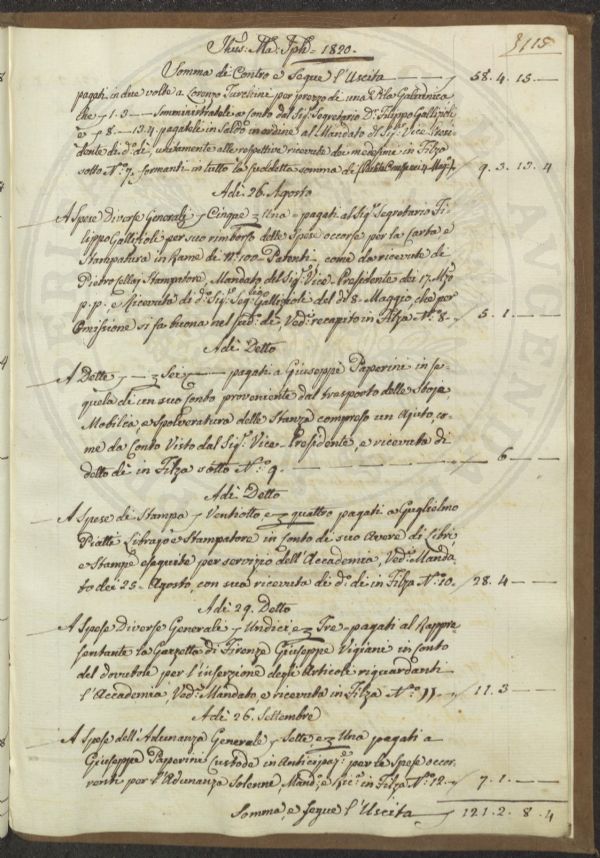 Jhus: Ma: Jph: 1820.
115
Somma di Contro e Segue l'Uscita 58. 4. 15. —
pagati in due volte a Lorenzo Turchini per prezzo di una Pila Galvanica
che 1. 3 — somministratole a conto dal Sigr. Segretario Dr. Filippo Gallizioli
e 8. — 13. 4. pagatele in Saldo in ordine al Mandato del Sigr. Vice Presi-
dente di do. dì, unitamente alle respettive ricevute dei medesimi in Filza
sotto No. 7. formanti in tutto la suddetta somma di 9. 3. 13. 4
Adì 26. Agosto
A Spese Diverse Generali Cinque e Una = pagati al Sigr. Segretario Fi-
lippo Gallizioli per suo rimborso delle Spese occorse per la Carta e
Stampatura in Rame di No. 100 = Patenti = come da ricevute di
Pietro Stampatore, Mandato del Sigr. Vice = Presidente dei 17. Mzo
p. p., e Ricevuta di do. Sigr. Sego. Gallizioli del dì 8 = Maggio, che per
Omissione si fa buona nel sudo. dì Vedi recapito in Filza No. 8. 5. 1. —
Adì Detto
A Dette Sei — pagati a Giuseppe Paperini in se-
quela di un suo Conto proveniente dal trasporto delle Stoje,
Mobilia, e Spolveratura delle Stanze compreso un Ajuto, co-
me da Conto Visto dal Sigr. Vice = Presidente, e ricevuta di
detto dì in Filza sotto No. 9. 6 —
Adì Detto
A Spese di Stampa Ventiotto, e quattro pagati a Guglielmo
Piatti Librajo e Stampatore in Conto di suo Avere di Libri,
e Stampe eseguite per servizio dell'Accademia, Vedi Manda-
to dei 25. Agosto, con sua ricevuta di do. dì in Filza No. 10. 28. 4 —
Adì 29. Detto
A Spese Diverse Generali Undici e Tre = pagati al Rappre-
sentante la Gazzetta di Firenze Giuseppe Vigiani in Conto
del dovutole per l'inserzione degli Articoli riguardanti
l'Accademia Vedi Mandato e ricevuta in Filza No. 11 11. 3 —
Adì 26. Settembre
A Spese dell'Adunanza Generale Sette e Una pagati a
Giuseppe Paperini Custode in Anticipaze. per le Spese occor-
renti per l'Adunanza Solenne Mando. e Rica. in Filza No. 12. 7. 1. —
Somma, e Segue l'Uscita 121. 2. 8. 4